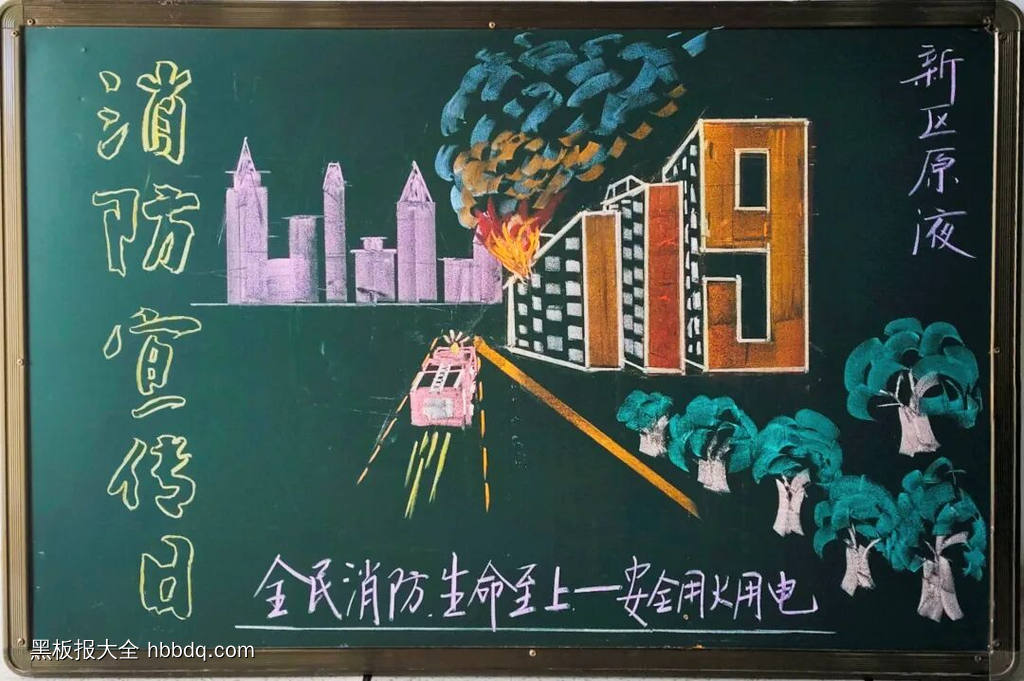 消防宣传日
新区原液
119
全民消防.生命至上—安全用火用电
黑板报大全 hbbdq.com